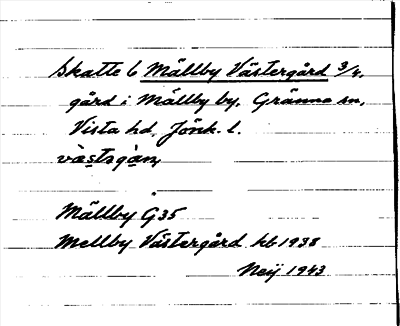 Skatte 6 Mällby Västergård 3/4,
gård i Mällby by, Gränna sn,
Vista hd, Jönk. l.
Mällby G35
Mellby Västergård kb 1938
Neij 1943